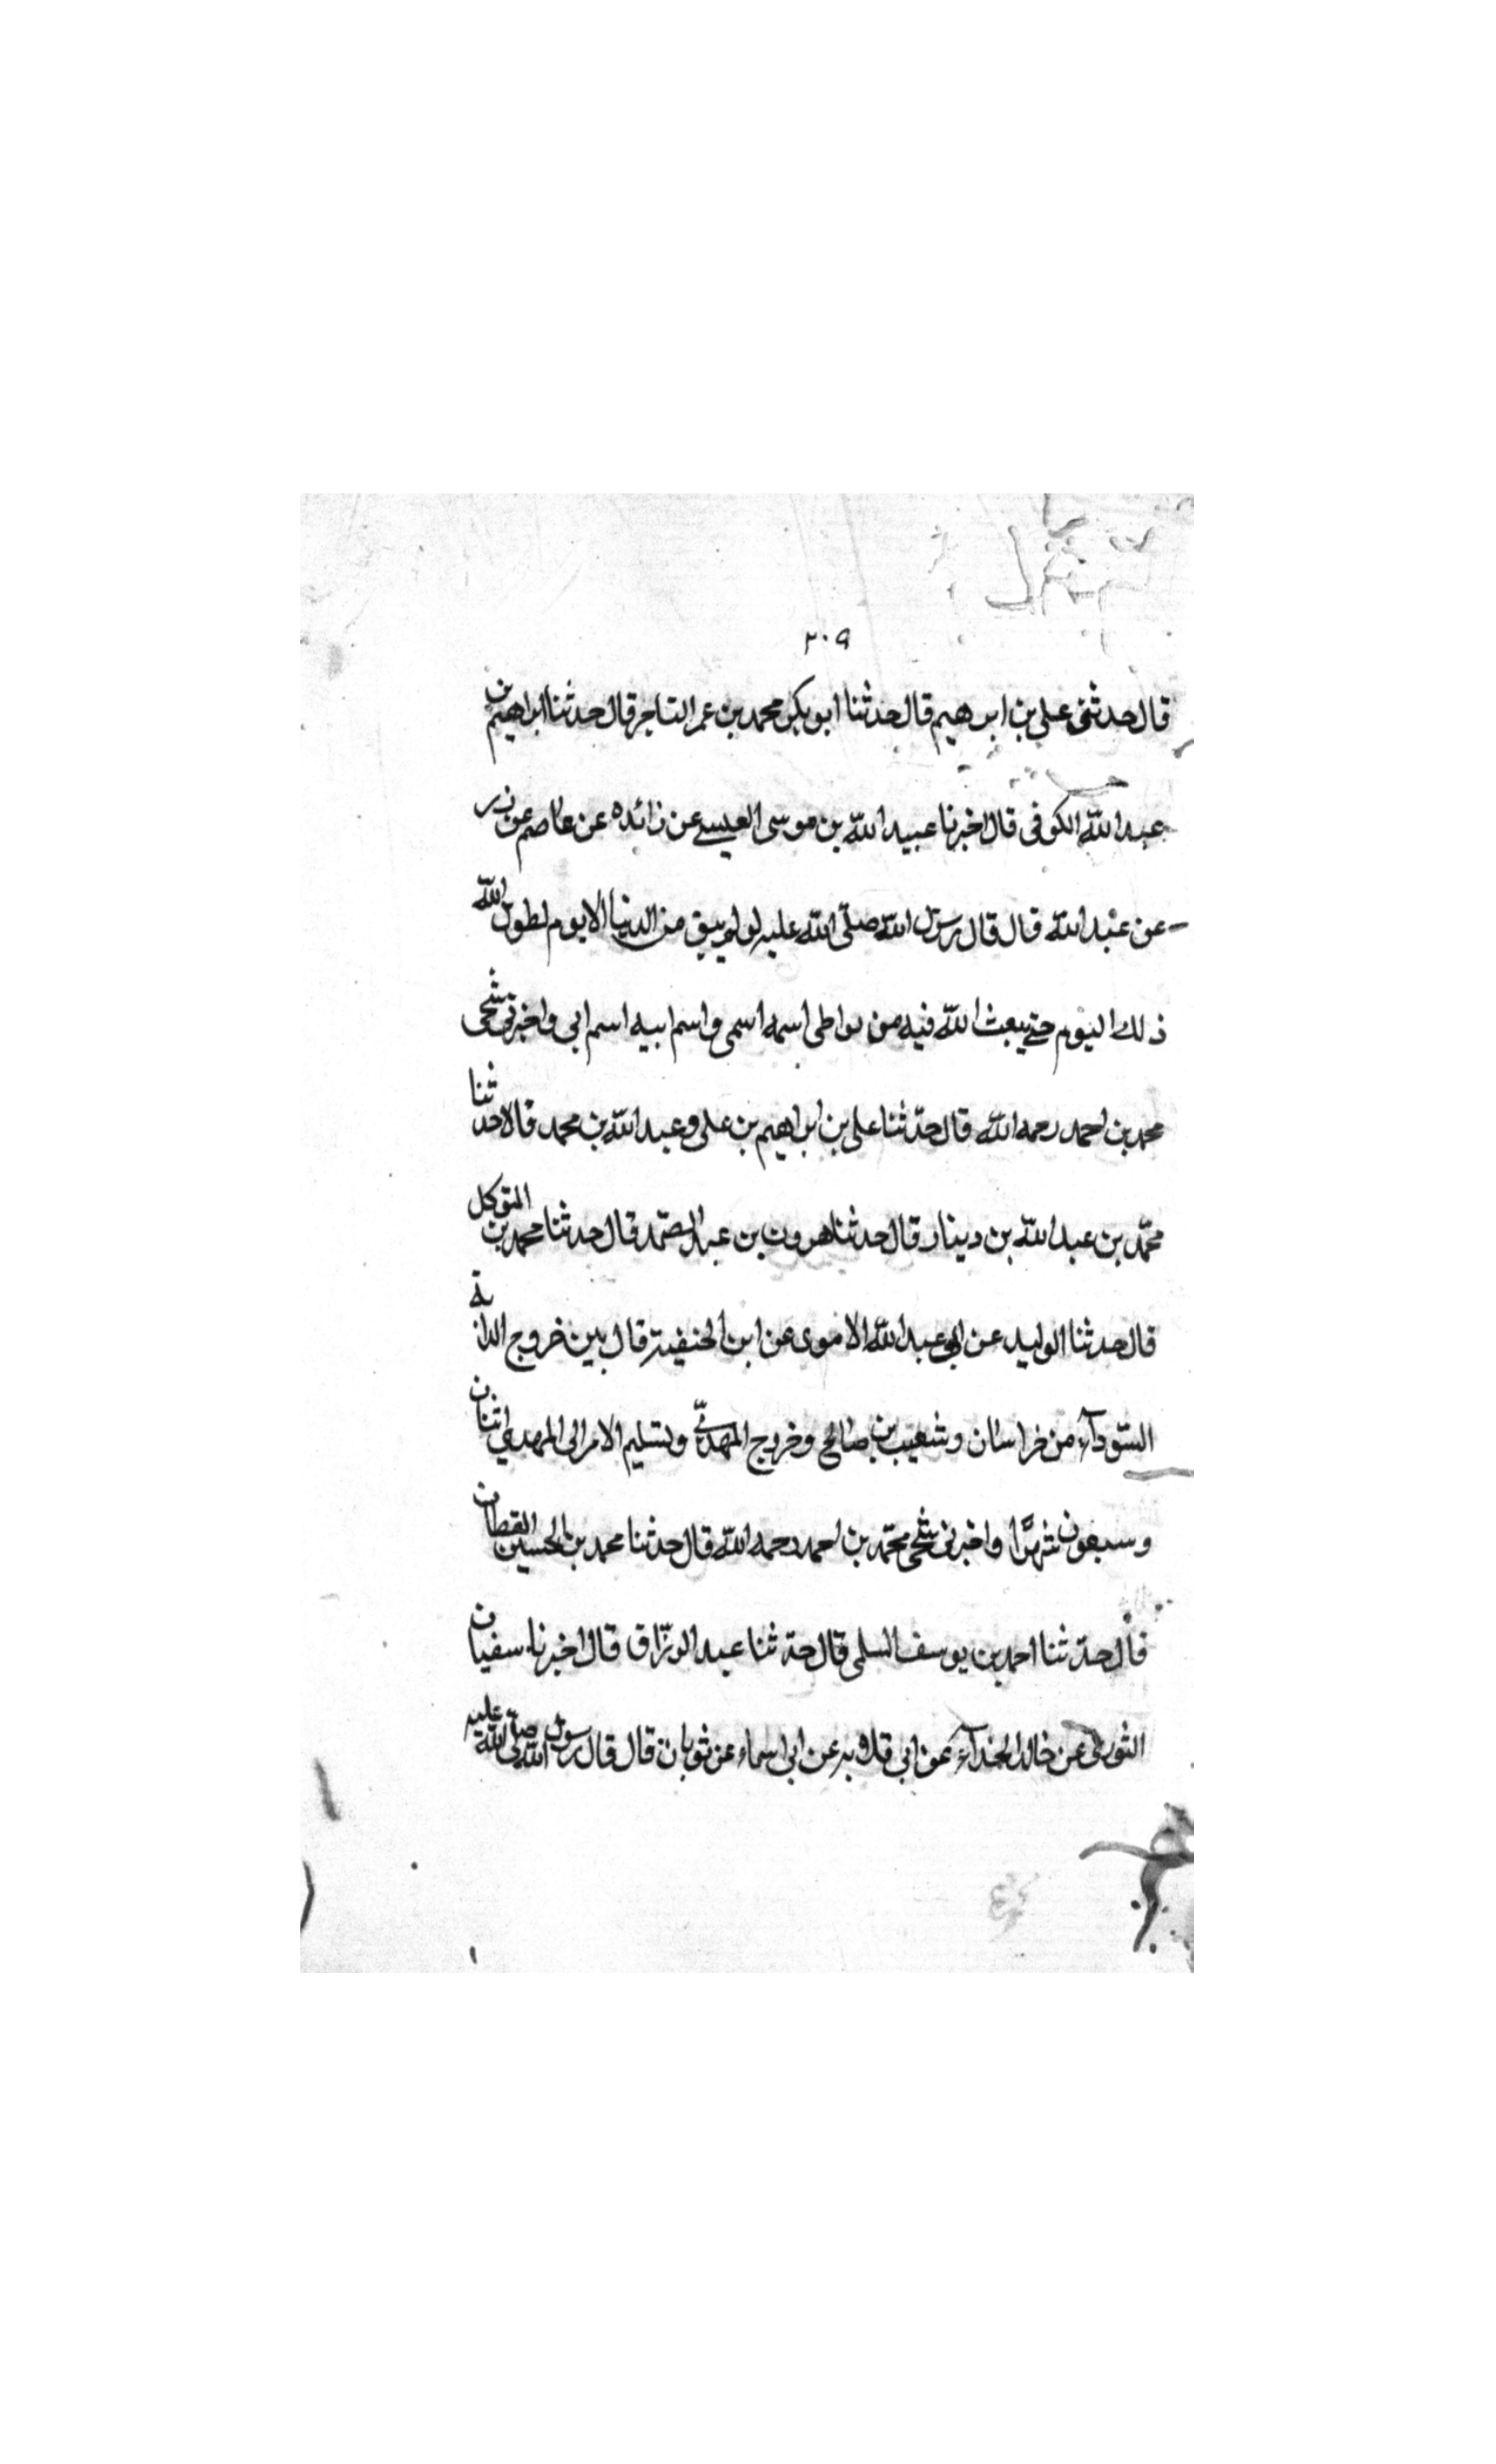 ٢٠٩
قال حدثنى على بن ابرهيم قال حدثنا ابو بكر محمد بن عمر التاجر قال حدثنا ابراهيم بن
عبد الله الكوفى قال اخبرنا عبيد الله بن موسى العبسى عن زائده عن عاصم عن زر
عن عبد الله قال قال رسول الله صلى الله عليه لو لم يبق من الدنيا الا يوم لطول الله
ذلك اليوم حتى يبعث الله فيه من يواطى اسمه اسمى واسم ابيه اسم ابى واخبرنى شيخى
محمد بن احمد رحمه الله قال حدثنا على بن ابراهيم بن على وعبد الله بن محمد قالا حدثنا
محمد بن عبد الله بن دينار قال حدثنا هرون بن عبد الصمد قال حدثنا محمد بن المتوكل
قال حدثنا الوليد عن ابى عبد الله الاموى عن ابن الحنفية قال بين خروج الراية
السودآء من خراسان وشعيب بن صالح وخروج المهدى وتسليم الامر الى المهدى اثنان
وسبعون شهرًا واخبرنى شيخى محمد بن احمد رحمه الله قال حدثنا محمد بن الحسين القطان
قال حدثنا احمد بن يوسف السلمى قال حدثنا عبد الرزاق قال اخبرنا سفيان
الثورى عن خالد الحذآء عن ابى قلابه عن ابى اسماء عن ثوبان قال قال رسول الله صلى الله عليه